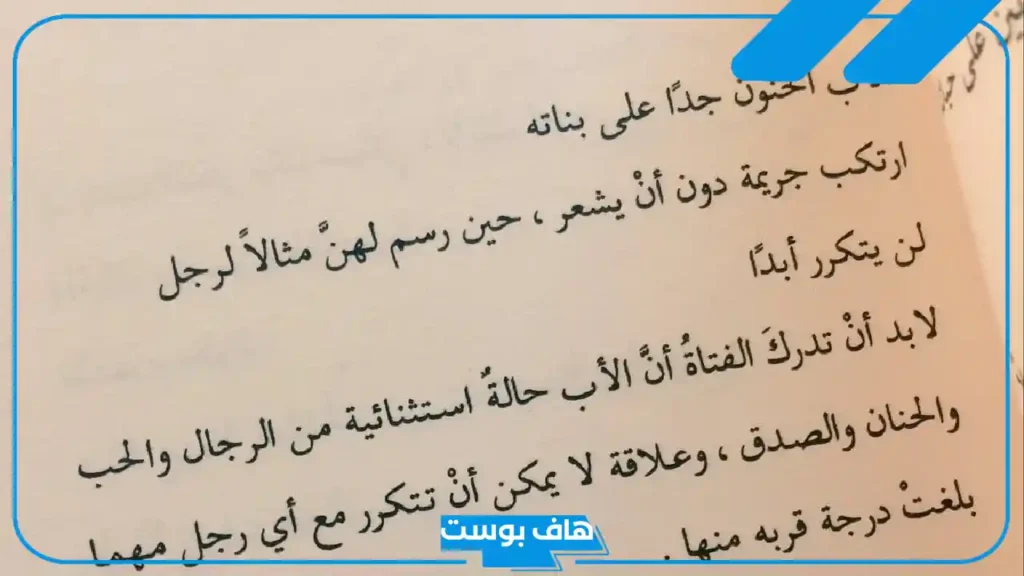 الحنون جدًا على بناته
ارتكب جريمة دون أنْ يشعر ، حين رسم لهنَّ مثالاً لرجل
لن يتكرر أبدًا
لابد أنْ تدركَ الفتاةُ أنَّ الأب حالةٌ استثنائية من الرجال والحب
والحنان والصدق ، وعلاقة لا يمكن أنْ تتكرر مع أي رجل مهما
بلغتْ درجة قربه منها .
هاف بوست